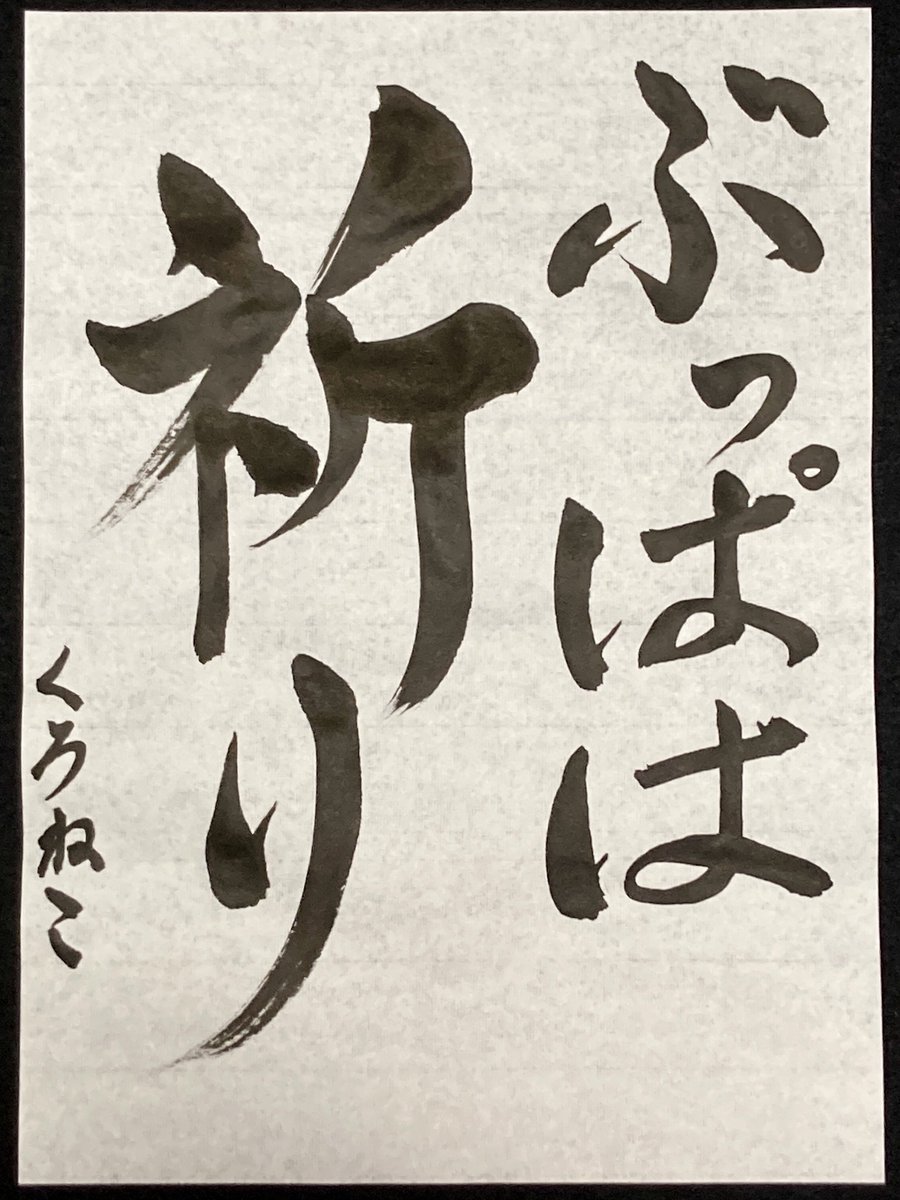 ぶっぱは
祈り
くろねこ